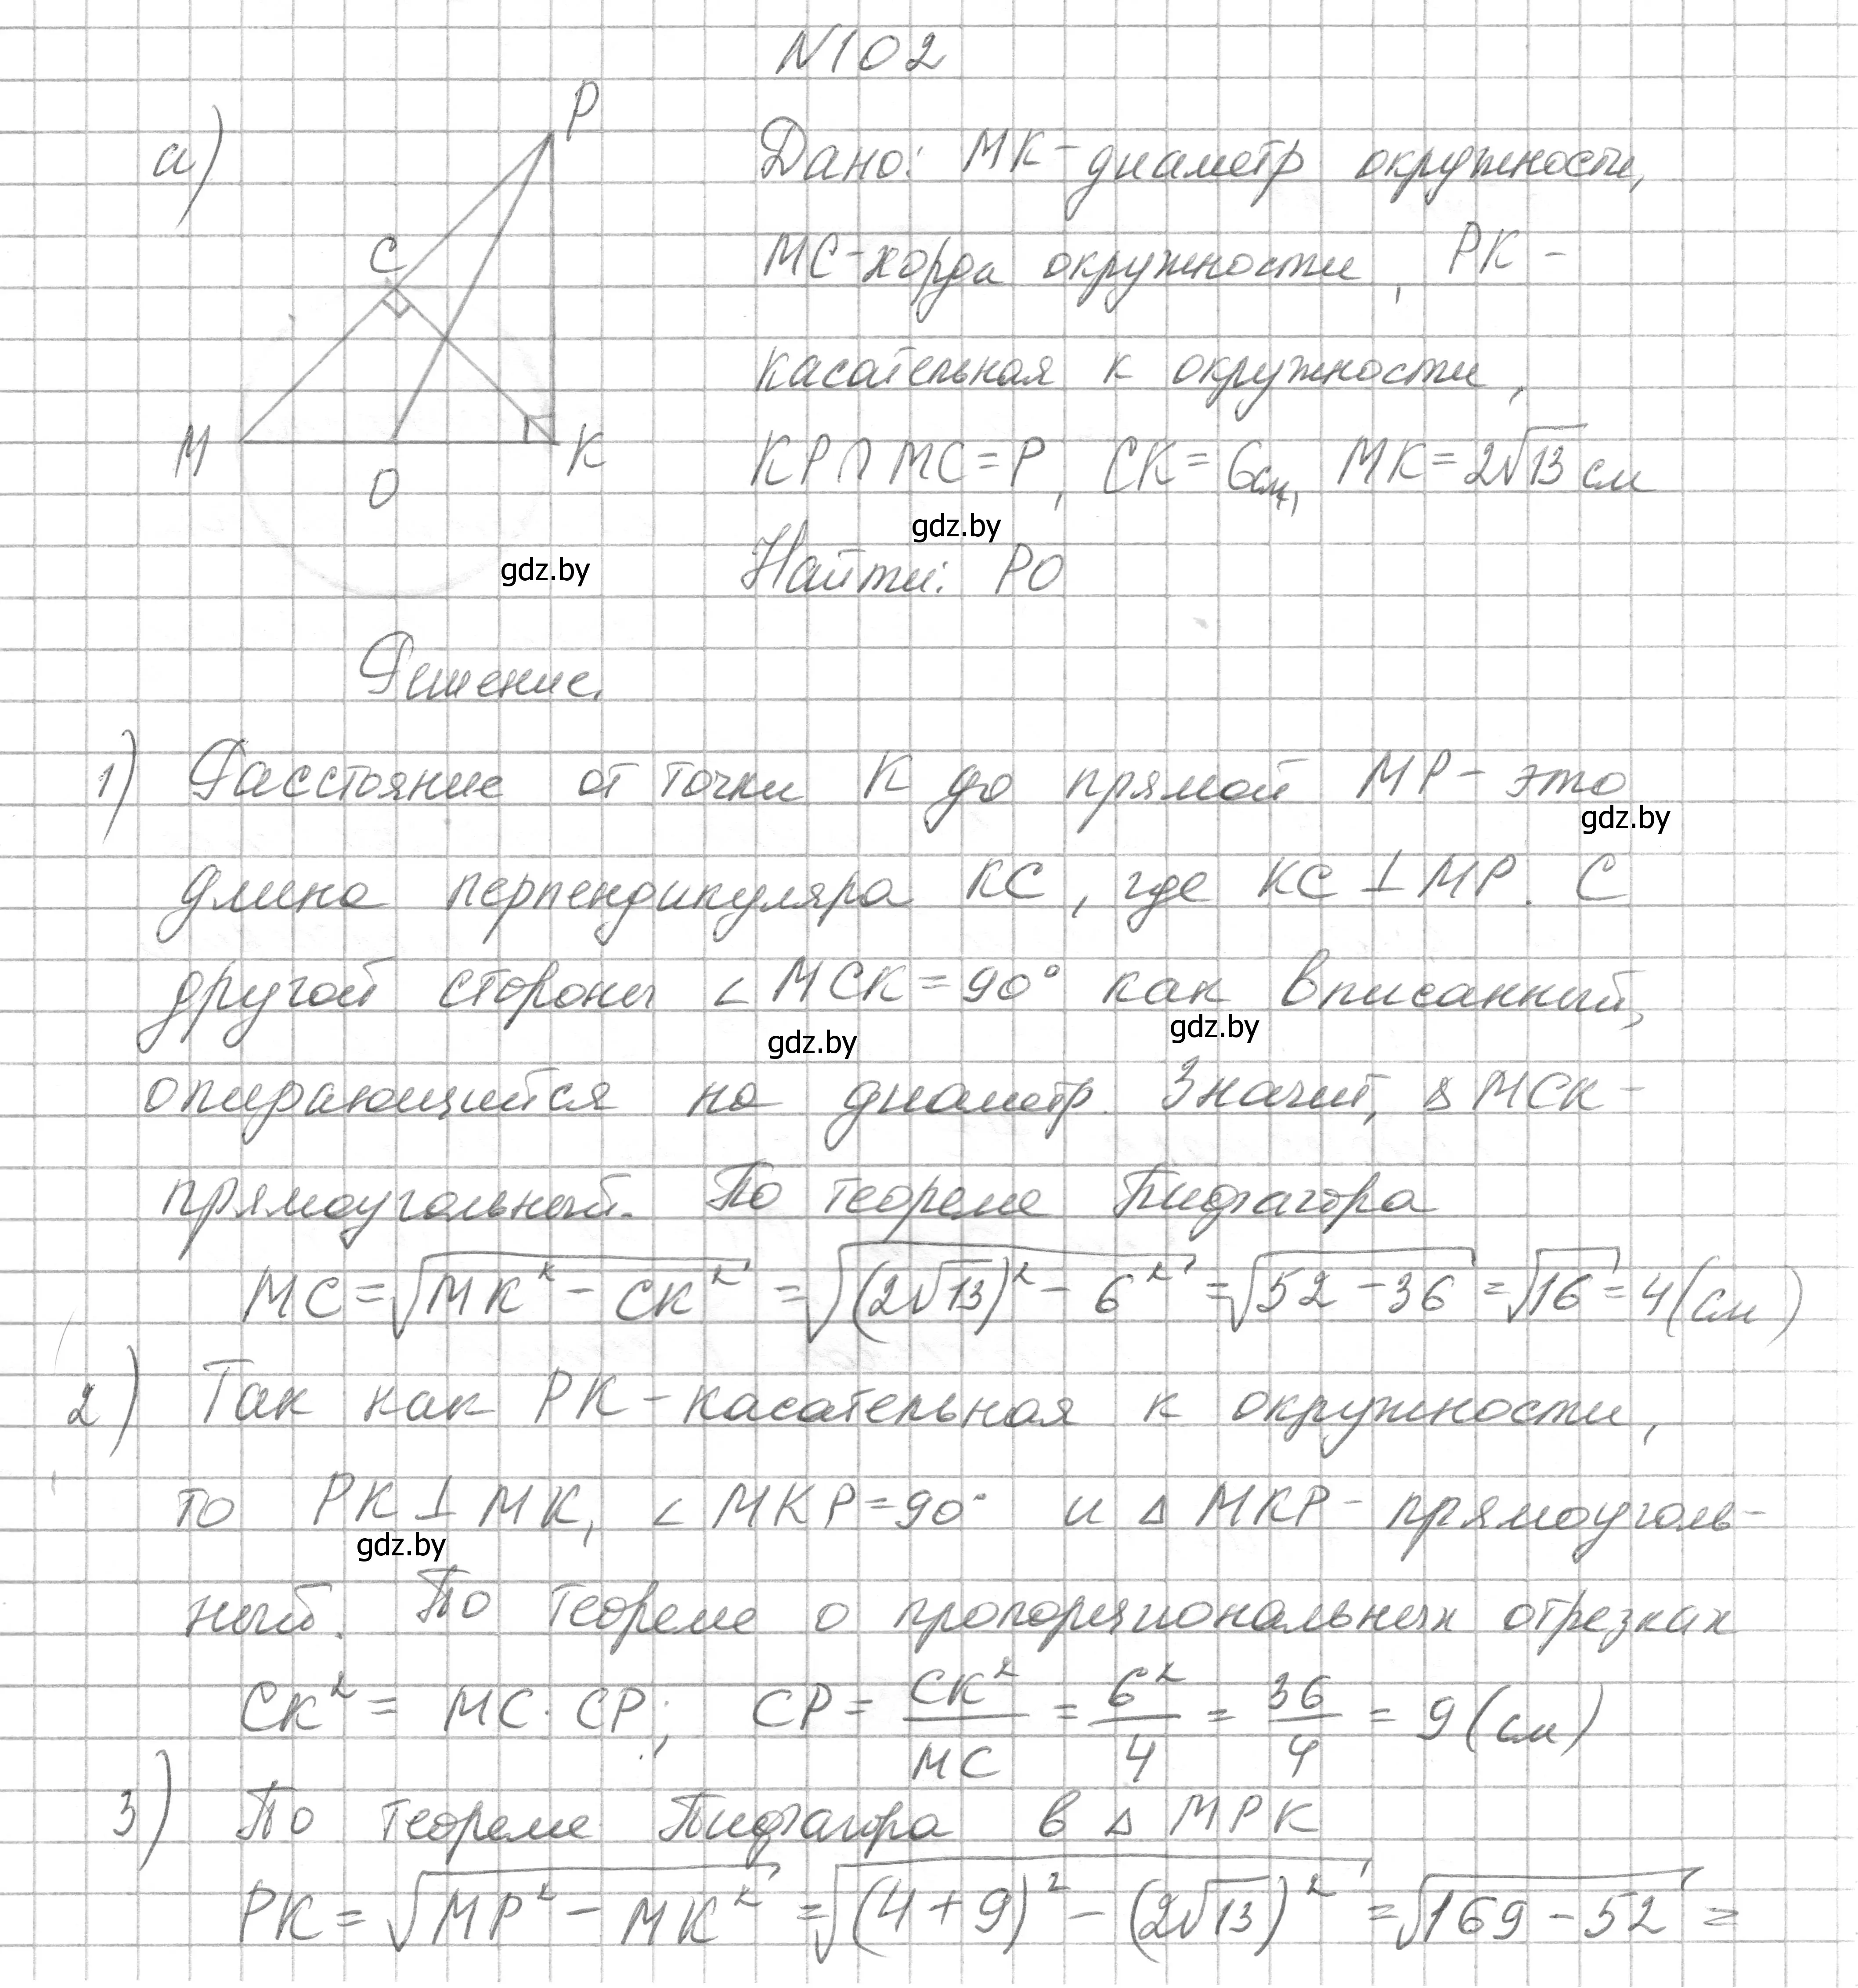 N102
а)
P
C
M
O
K
Дано: MK - диаметр окружности,
MC - хорда окружности, PK -
касательная к окружности,
KP ∩ MC = P, CK = 6см, MK = 2√13 см
gdz.by
Найти: PO
gdz.by
Решение.
1) Расстояние от точки K до прямой MP - это
gdz.by
длина перпендикуляра KC, где KC ⊥ MP. С
другой стороны ∠MCK = 90° как вписанный,
gdz.by
gdz.by
опирающийся на диаметр. Значит, △MCK -
прямоугольный. По теореме Пифагора
MC = √(MK² - CK²) = √((2√13)² - 6²) = √(52 - 36) = √16 = 4 (см)
2) Так как PK - касательная к окружности,
то PK ⊥ MK, ∠MKP = 90° и △MKP - прямоуголь-
gdz.by
ный. По теореме о пропорциональных отрезках
CK² = MC · CP; CP = CK²/MC = 6²/4 = 36/4 = 9 (см)
3) По теореме Пифагора в △MPK
PK = √(MP² - MK²) = √((4+9)² - (2√13)²) = √(169 - 52) =